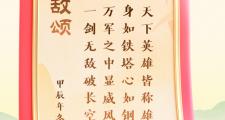 敌颂
天下英雄皆称雄
身如铁塔心如钢
万军之中显威风
一剑无敌破长空
甲辰年冬